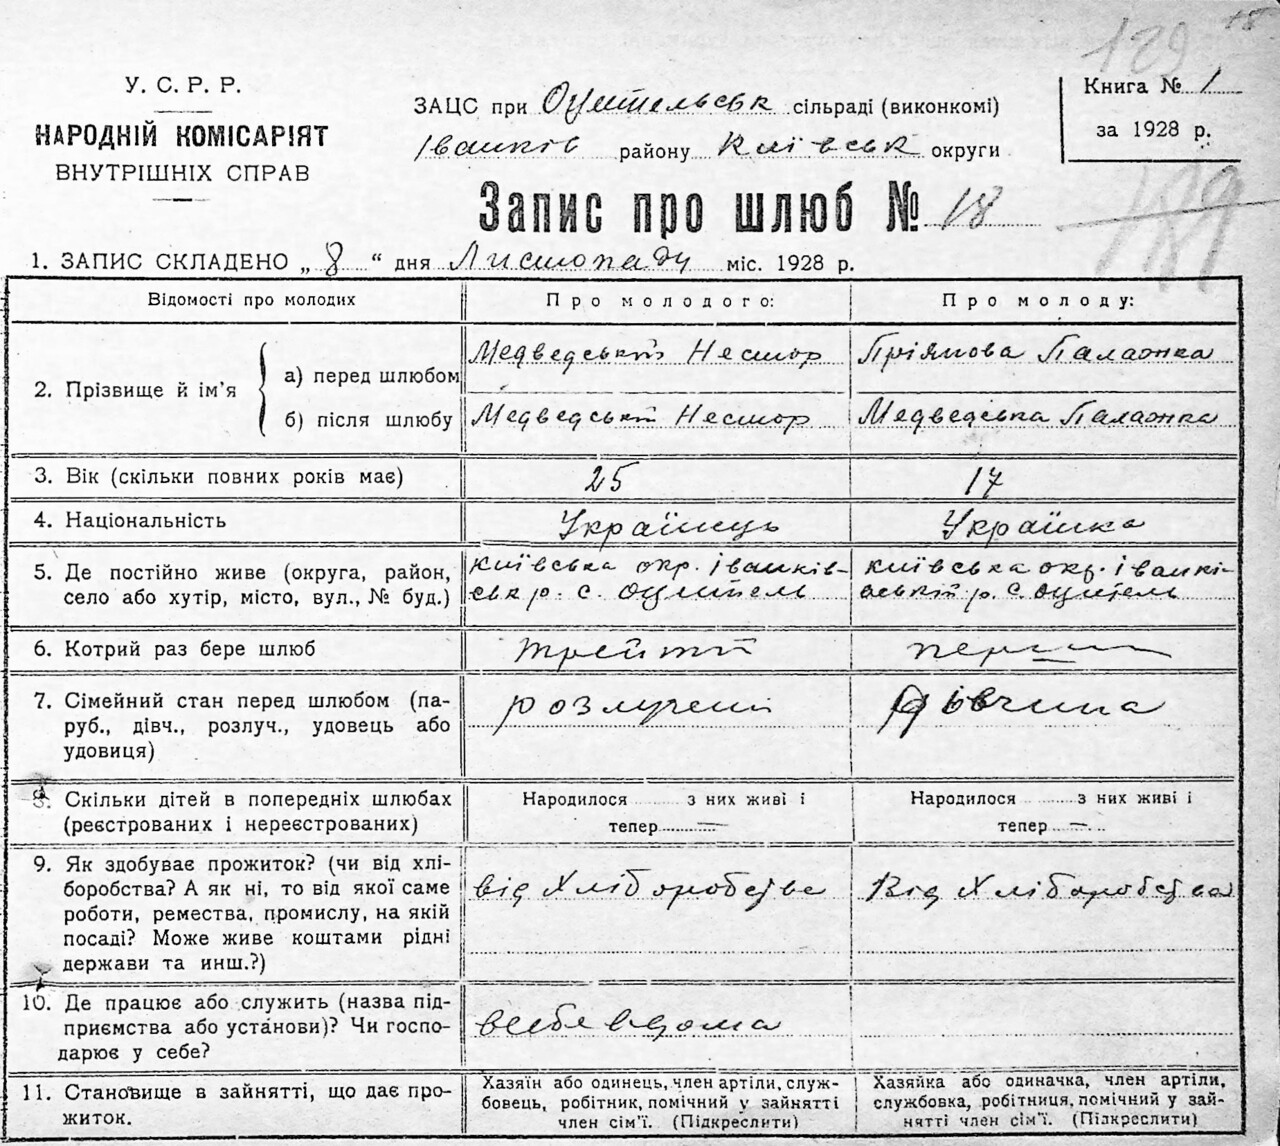 189
18
У. С. Р. Р.
НАРОДНІЙ КОМІСАРІЯТ
ВНУТРІШНІХ СПРАВ
ЗАЦС при Оцительськ сільраді (виконкомі)
Іванків району Київськ округи
Книга № 1
за 1928 р.
Запис про шлюб № 18
189
1. ЗАПИС СКЛАДЕНО „ 8 “ дня Листопаду міс. 1928 р.
Відомості про молодих
Про молодого:
Про молоду:
2. Прізвище й ім’я
а) перед шлюбом
Медведський Нестор
Пріямова Палажка
б) після шлюбу
Медведський Нестор
Медведська Палажка
3. Вік (скільки повних років має)
25
17
4. Національність
Українець
Українка
5. Де постійно живе (округа, район,
село або хутір, місто, вул., № буд.)
Київська окр. Іванків-
ськ р. с. Оцитель
Київська окр. Іванкі-
вський р. с. Оцитель
6. Котрий раз бере шлюб
третій
перший
7. Сімейний стан перед шлюбом (па-
руб., дівч., розлуч., удовець або
удовиця)
розлучений
Дівчина
8. Скільки дітей в попередніх шлюбах
(реєстрованих і нереєстрованих)
Народилося ........ з них живі і
тепер ........ —
Народилося ........ з них живі і
тепер ..... — ...
9. Як здобуває прожиток? (чи від хлі-
боробства? А як ні, то від якої саме
роботи, ремества, промислу, на якій
посаді? Може живе коштами рідні
держави та инш.?)
від Хліборобства
Від Хліборобства
10. Де працює або служить (назва під-
приємства або установи)? Чи госпо-
дарює у себе?
всебе вдома
11. Становище в зайнятті, що дає про-
житок.
Хазяїн або одинець, член артіли, служ-
бовець, робітник, помічний у зайнятті
член сім’ї. (Підкреслити)
Хазяйка або одиначка, член артіли,
службовка, робітниця, помічний у зай-
нятті член сім’ї. (Підкреслити)